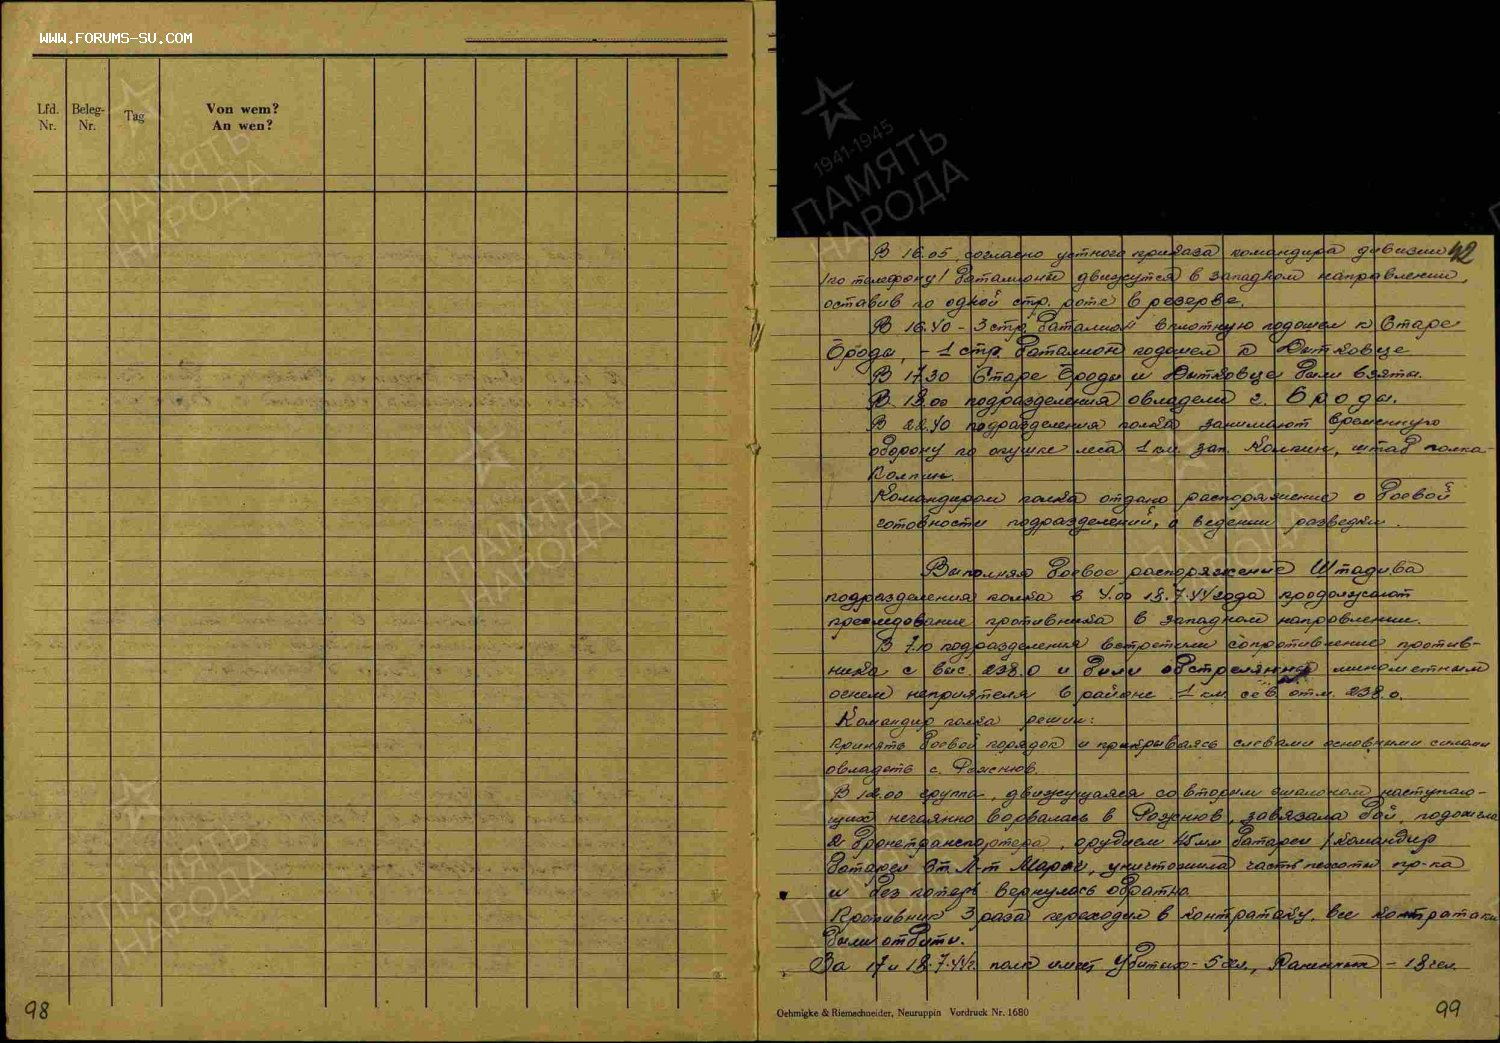 WWW.FORUMS-SU.COM
Lfd. Nr.
Beleg-Nr.
Tag
Von wem?
An wen?
1941-1945
ПАМЯТЬ
НАРОДА
42
В 16.05, согласно устного приказа командира дивизии
/по телефону/ батальоны движутся в западном направлении,
оставив по одной стр. роте в резерве.
В 16.40 - 3 стр. батальон вплотную подошел к Старе
Броды, - 1 стр. батальон подошел к Дытковце
В 17.30 Старе Броды и Дытковце были взяты.
В 18.00 подразделения овладели г. Броды.
В 22.40 подразделения полка занимают временную
оборону по опушке леса 1 км. зап. Колпин, штаб полка-
Колпин.
Командиром полка отдано распоряжение о боевой
готовности подразделений, о ведении разведки.
Выполняя боевое распоряжение Штадива
подразделения полка в 4.00 18.7.44 года продолжают
преследование противника в западном направлении.
В 7.10 подразделения встретили сопротивление против-
ника с выс. 238.0 и были обстреляны минометным
огнем неприятеля в районе 1 км. сев. отм. 238.0.
Командир полка решил:
принять боевой порядок и прикрываясь слева основными силами
овладеть с. Рожнюв.
В 12.00 группа, движущаяся со вторым эшалоном наступаю-
щих нечаянно ворвалась в Рожнюв, завязала бой, подожгла
2 бронетранспортера, орудием 45 мм батареи /командир
батареи Ст. Л-т, уничтожила часть пехоты пр-ка
и без потерь вернулась обратно.
Противник 3 раза переходил в контратаку, все контратаки
были отбиты.
За 17 и 18.7.44 г. полк имеет Убитых - 5 чел., Раненых - 18 чел.
98
Oehmigke & Riemschneider, Neuruppin Vordruck Nr. 1680
99